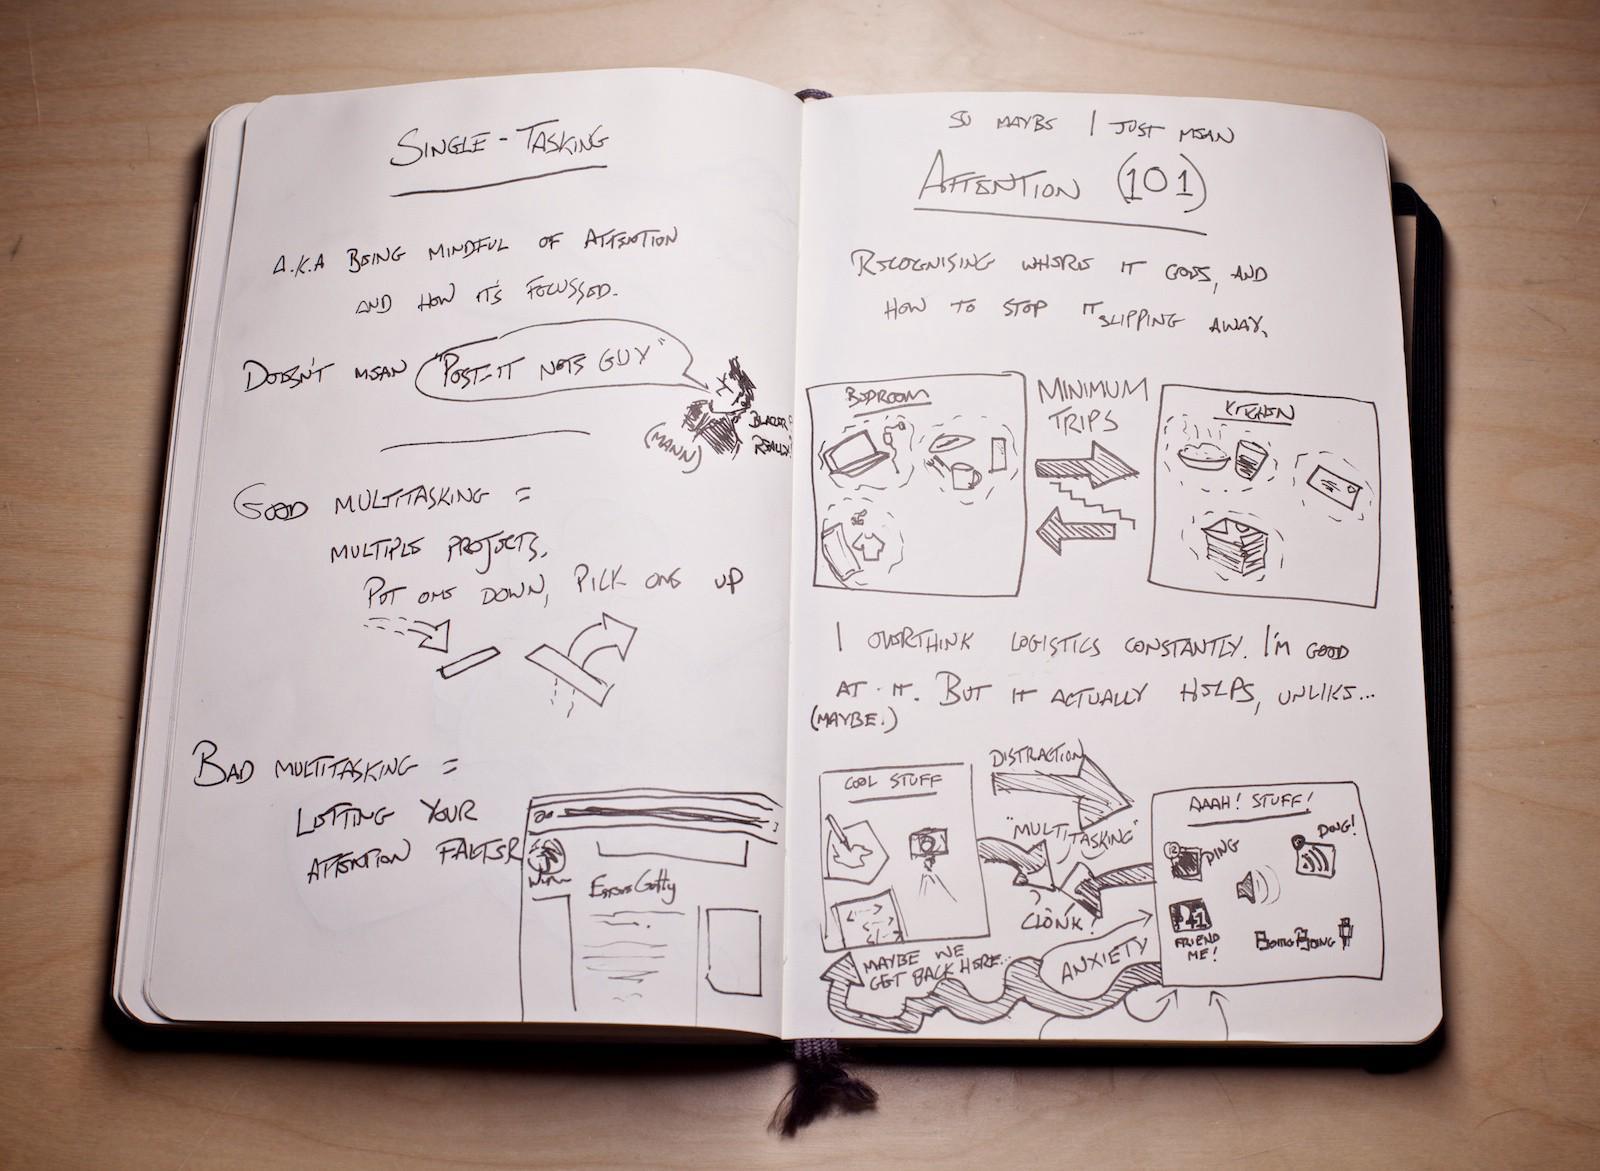 SINGLE-TASKING
A.K.A BEING MINDFUL OF ATTENTION
AND HOW IT'S FOCUSSED.
DOESN'T MEAN "POST-IT NOTE GUY"
(MANN)
REALLY?
GOOD MULTITASKING =
MULTIPLE PROJECTS.
PUT ONE DOWN, PICK ONE UP
BAD MULTITASKING =
LETTING YOUR
ATTENTION FALTER
SO MAYBE I JUST MEAN
ATTENTION (101)
RECOGNISING WHERE IT GOES, AND
HOW TO STOP IT SLIPPING AWAY.
BEDROOM
MINIMUM
TRIPS
KITCHEN
I OVERTHINK LOGISTICS CONSTANTLY. I'M GOOD
AT IT. BUT IT ACTUALLY HELPS, UNLIKE...
(MAYBE.)
COOL STUFF
DISTRACTION
"MULTITASKING"
CLONK!
AAAH! STUFF!
12
PING
DING!
+1
FRIEND
ME!
BOING BOING
MAYBE WE
GET BACK HERE...
ANXIETY